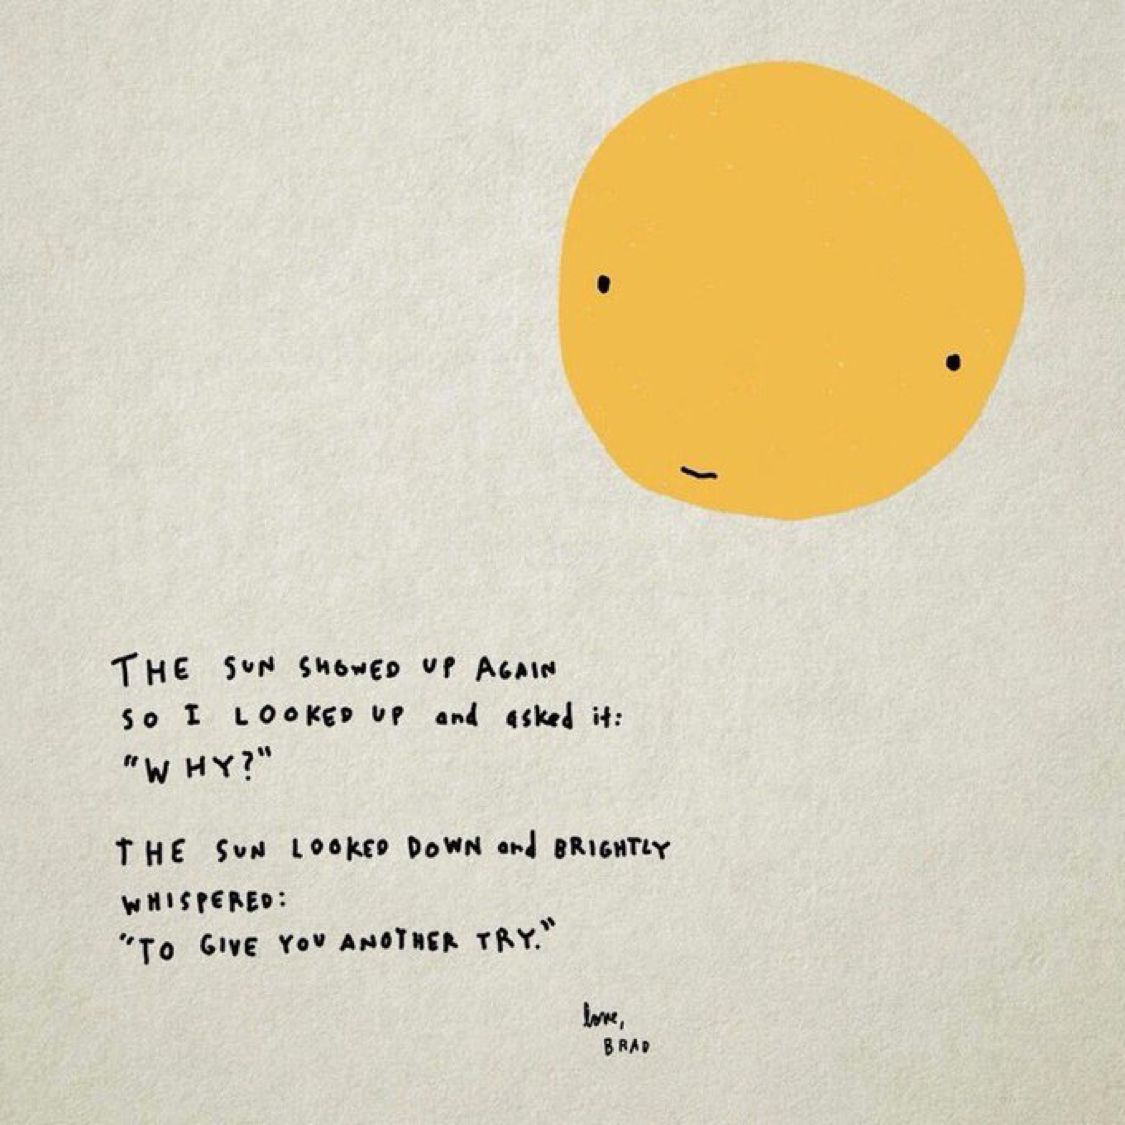 THE SUN SHOWED UP AGAIN
SO I LOOKED UP and asked it:
"WHY?"
THE SUN LOOKED DOWN and BRIGHTLY
WHISPERED:
"TO GIVE YOU ANOTHER TRY."
love,
BRAD